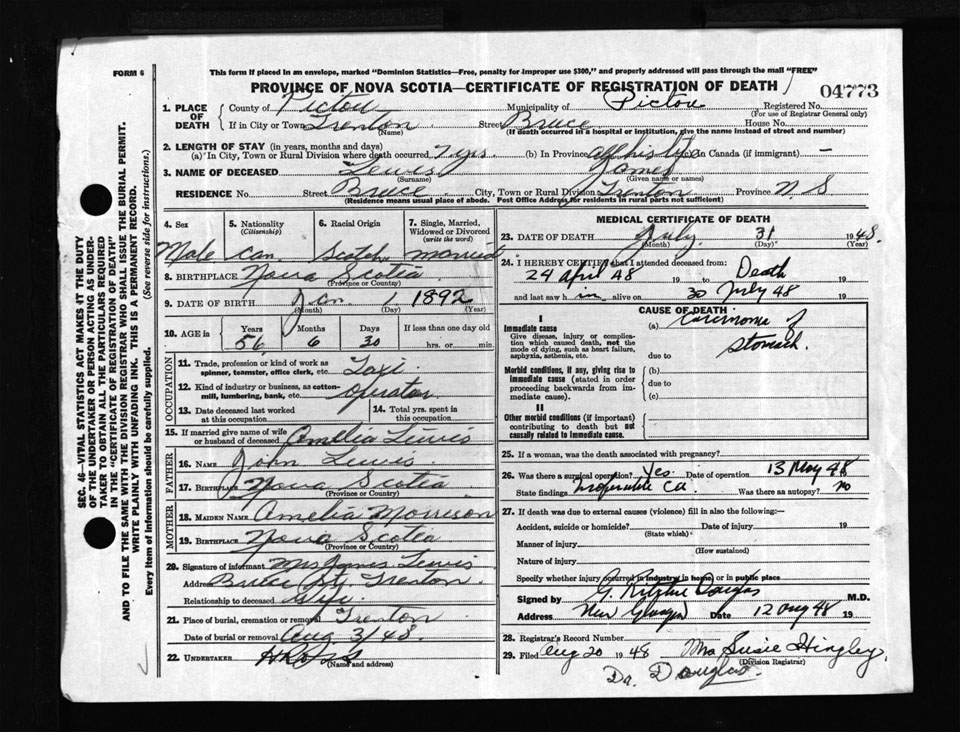 FORM 6
This form if placed in an envelope, marked "Dominion Statistics—Free, penalty for improper use $300," and properly addressed will pass through the mail "FREE"
PROVINCE OF NOVA SCOTIA—CERTIFICATE OF REGISTRATION OF DEATH
04773
1. PLACE OF DEATH
County of Pictou Municipality of Pictou Registered No.
(For use of Registrar General only)
If in City or Town Trenton Street Bruce House No.
(Name) (If death occurred in a hospital or institution, give the name instead of street and number)
2. LENGTH OF STAY (in years, months and days)
(a) In City, Town or Rural Division where death occurred 7 yrs (b) In Province all his life (c) in Canada (if immigrant) —
3. NAME OF DECEASED Lewis James
(Surname) (Given name or names)
RESIDENCE No. Street Bruce City, Town or Rural Division Trenton Province N. S
(Residence means usual place of abode. Post Office Address for residents in rural parts not sufficient)
4. Sex 5. Nationality (Citizenship) 6. Racial Origin 7. Single, Married, Widowed or Divorced (write the word)
Male Can. Scotch married
8. BIRTHPLACE Nova Scotia
(Province or Country)
9. DATE OF BIRTH Jan. 1 1892
(Month) (Day) (Year)
10. AGE in Years Months Days If less than one day old
56 6 30 hrs. or min.
OCCUPATION
11. Trade, profession or kind of work as spinner, teamster, office clerk, etc. Taxi
12. Kind of industry or business, as cotton-mill, lumbering, bank, etc. operator
13. Date deceased last worked at this occupation
14. Total yrs. spent in this occupation
15. If married give name of wife or husband of deceased Amelia Lewis
FATHER
16. NAME John Lewis
17. BIRTHPLACE Nova Scotia
(Province or Country)
MOTHER
18. MAIDEN NAME Amelia Morrison
19. BIRTHPLACE Nova Scotia
(Province or Country)
20. Signature of informant Mrs James Lewis
Address Bruce St, Trenton
Relationship to deceased Wife
21. Place of burial, cremation or removal Trenton
Date of burial or removal Aug 3/48.
22. UNDERTAKER
(Name and address)
MEDICAL CERTIFICATE OF DEATH
23. DATE OF DEATH July 31 1948.
(Month) (Day) (Year)
24. I HEREBY CERTIFY that I attended deceased from:
24 April 48 19 to Death 19
and last saw h im alive on 30 July 48 19
CAUSE OF DEATH
I
Immediate cause (a) Carcinoma of
Give disease, injury or complication which caused death, not the mode of dying, such as heart failure, asphyxia, asthenia, etc.
stomach.
due to
Morbid conditions, if any, giving rise to immediate cause (stated in order proceeding backwards from immediate cause).
(b)
due to
(c)
II
Other morbid conditions (if important) contributing to death but not causally related to immediate cause.
25. If a woman, was the death associated with pregnancy?
26. Was there a surgical operation? Yes. Date of operation 13 May 48
State findings Inoperable Ca Was there an autopsy? no
27. If death was due to external causes (violence) fill in also the following:—
Accident, suicide or homicide? Date of injury 19
(State which)
Manner of injury
(How sustained)
Nature of injury
Specify whether injury occurred in industry in home, or in public place
Signed by G. Ritchie Douglas M.D.
Address New Glasgow Date 12 Aug 48 19
28. Registrar's Record Number
29. Filed Aug 20 1948 Mrs Susie Hingley,
(Division Registrar)
Dr. Douglas.
SEC. 46—VITAL STATISTICS ACT MAKES IT THE DUTY
OF THE UNDERTAKER OR PERSON ACTING AS UNDER-
TAKER TO OBTAIN ALL THE PARTICULARS REQUIRED
IN THE "CERTIFICATE OF REGISTRATION OF DEATH"
AND TO FILE THE SAME WITH THE DIVISION REGISTRAR WHO SHALL ISSUE THE BURIAL PERMIT.
WRITE PLAINLY WITH UNFADING INK. THIS IS A PERMANENT RECORD.
Every item of information should be carefully supplied. (See reverse side for instructions.)